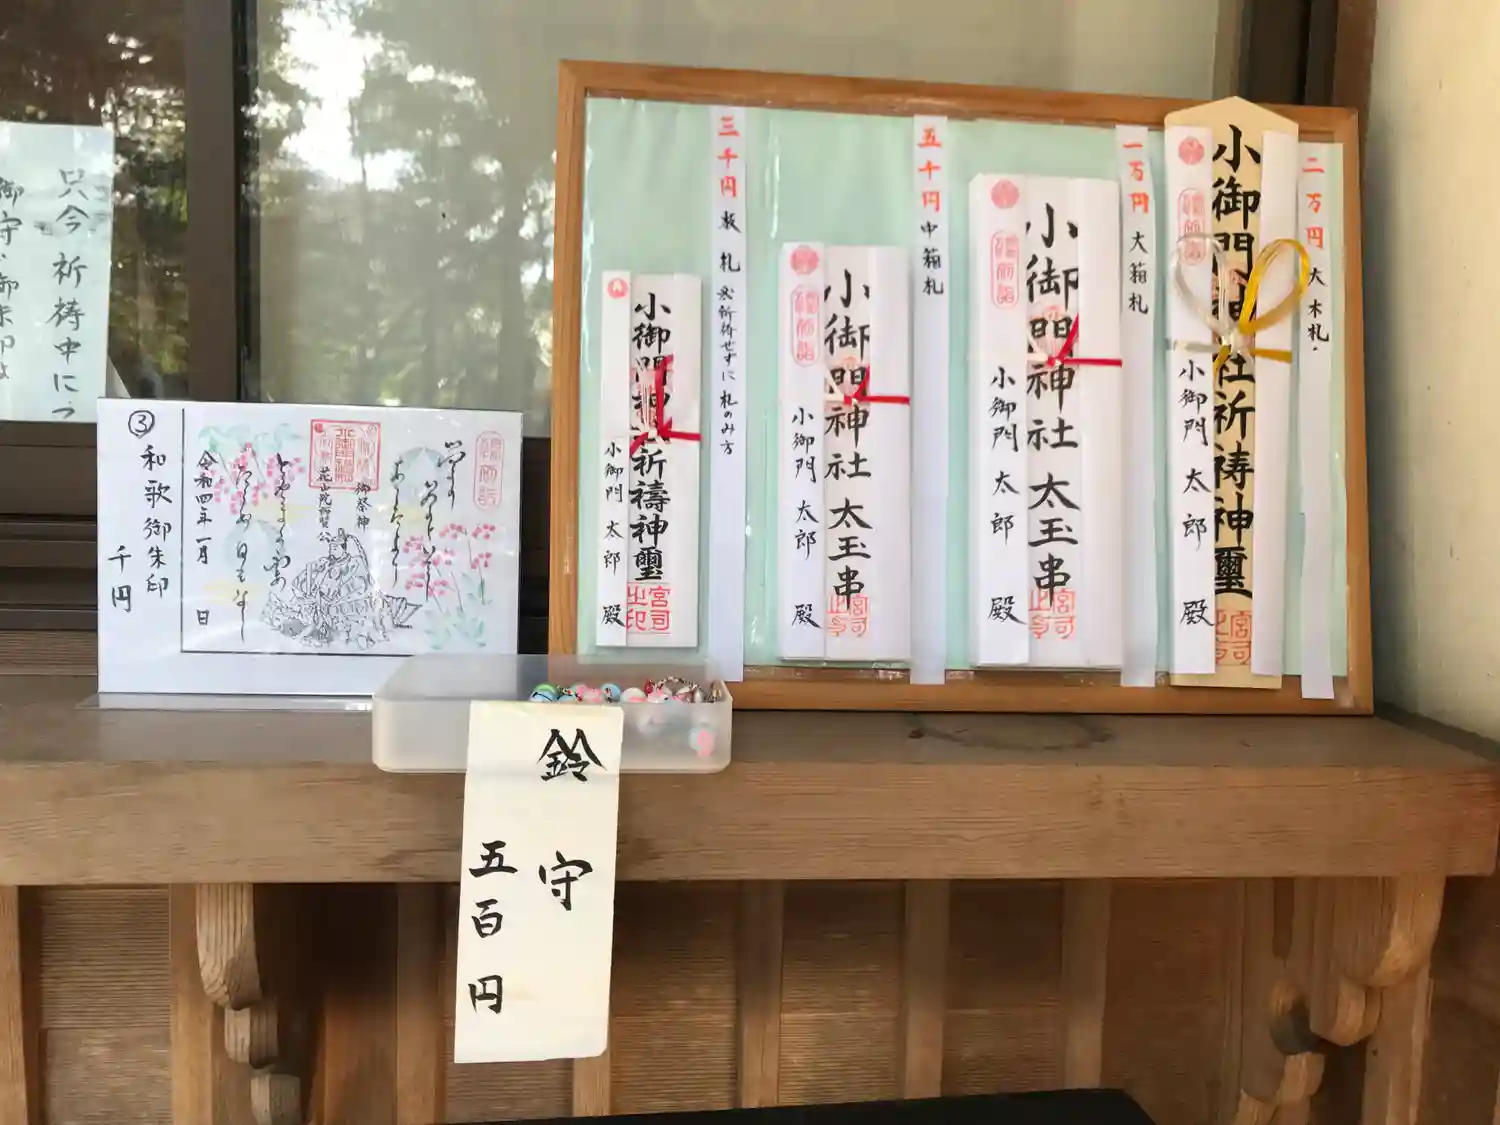 二万円 大木札
小御門神社祈祷神璽
小御門 太郎 殿
一万円 大箱札
小御門神社 太玉串
小御門 太郎 殿
五千円 中箱札
小御門神社 太玉串
小御門 太郎 殿
三千円 板札 ※祈祷せずに札のみ方
小御門神社祈禱神璽
小御門 太郎 殿
宮司之印
③ 和歌御朱印
千円
御祭神
花山院師賢公
令和四年一月 日
鈴守
五百円
只今祈祷中に
御守、御朱印は